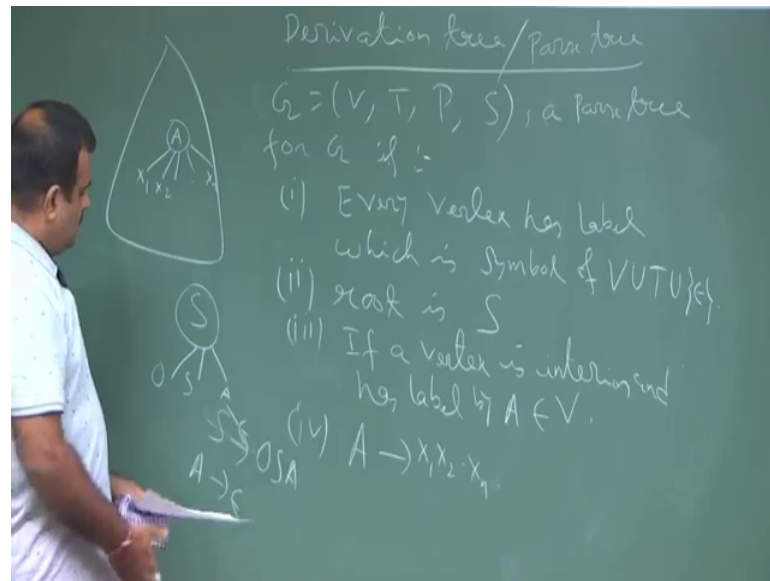 Derivation tree/Parse tree
G = (V, T, P, S), a Parse tree
for G if :-
(i) Every vertex has label
which is symbol of V∪T∪{ϵ}.
(ii) root is S
(iii) If a vertex is interior and
has label by A ∈ V.
(iv) A → X₁X₂..Xₙ.
A
X₁ X₂ . . Xₙ
S
0 S A
ϵ
S → 0SA
A → ϵ